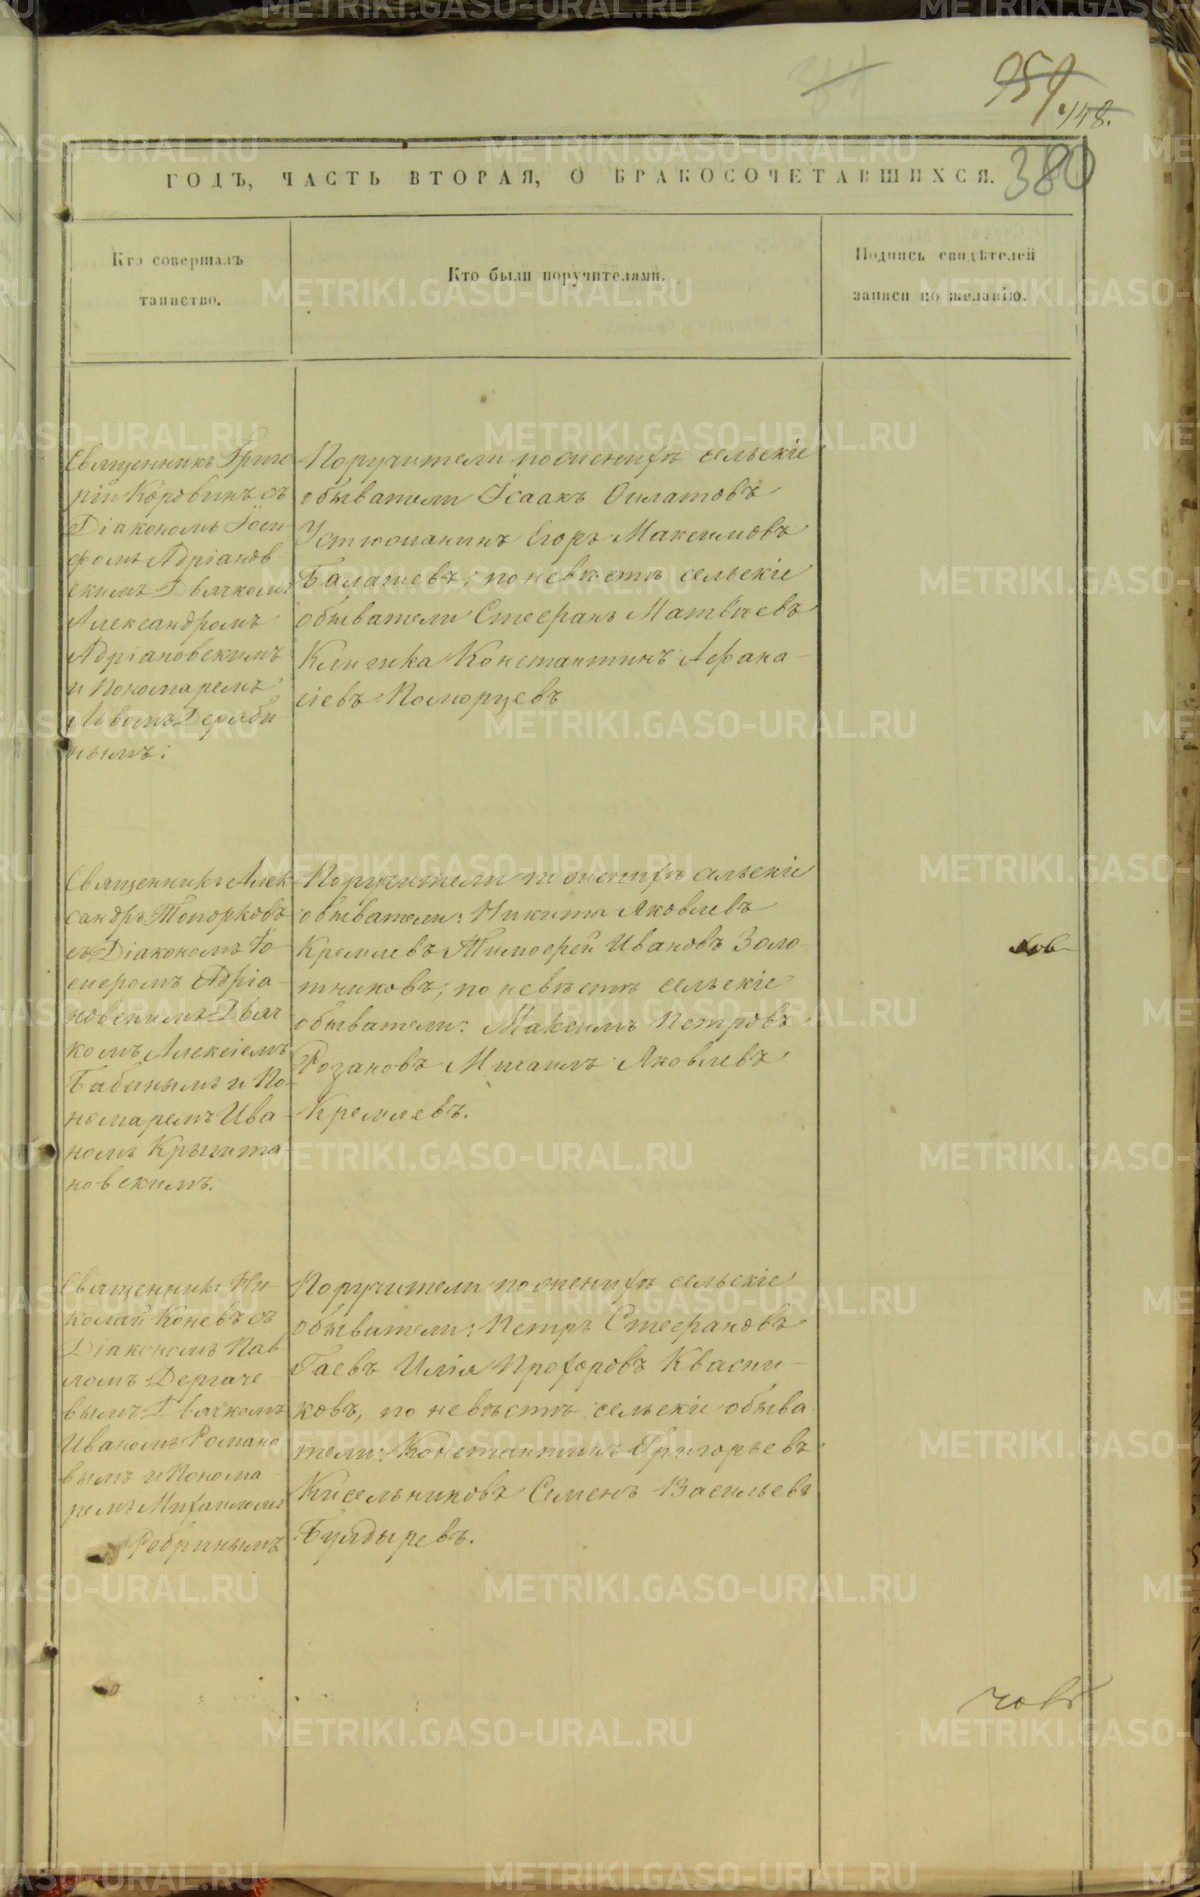 959
148.
380
ГОДЪ, ЧАСТЬ ВТОРАЯ, О БРАКОСОЧЕТАВШИХСЯ.
Кто совершалъ
таинство.
Кто были поручителями.
Подпись свидѣтелей
записи по желанію.
Священникъ Григо
рій Коровинъ съ
Діакономъ Іоси-
фомъ Адріанов-
скимъ Дьячкомъ
Александромъ
Адріановскимъ
и Пономаремъ
Львомъ Деряби-
нымъ:
Поручители по женихѣ сельскіе
обыватели Ісаакъ Филатовъ
Устюжанинъ Егоръ Максимовъ
Балашевъ; по невѣстѣ сельскіе
обыватели Стефанъ Матвѣевъ
Клигика Константинъ Афана-
сіевъ Поморцевъ
Священникъ Алек-
сандръ Топорковъ
съ Діакономъ Іо-
сифомъ Адріа-
новскимъ Дьяч
комъ Алексіемъ
Бабинымъ и По-
номаремъ Ива-
номъ Крыжта-
новскимъ.
Поручители по женихѣ сельскіе
обыватели: Никита Яковлевъ
Кремлевъ Тимофей Ивановъ Золо
тниковъ; по невѣстѣ сельскіе
обыватели: Максимъ Петровъ
Розановъ Михаилъ Яковлевъ
Кремлевъ.
Священникъ Ни-
колай Коневъ съ
Діакономъ Пав
ломъ Дергаче-
вымъ Дьячкомъ
Иваномъ Романо
вымъ и Понома-
ремъ Михаиломъ
Ребринымъ
Поручители по женихѣ сельскіе
обыватели: Петръ Стефановъ
Гаевъ Илія Прохоровъ Квасни-
ковъ, по невѣстѣ сельскіе обыва
тели: Константинъ Григорьевъ
Кисельниковъ Семенъ Васильевъ
Булдыревъ.
METRIKI.GASO-URAL.RU